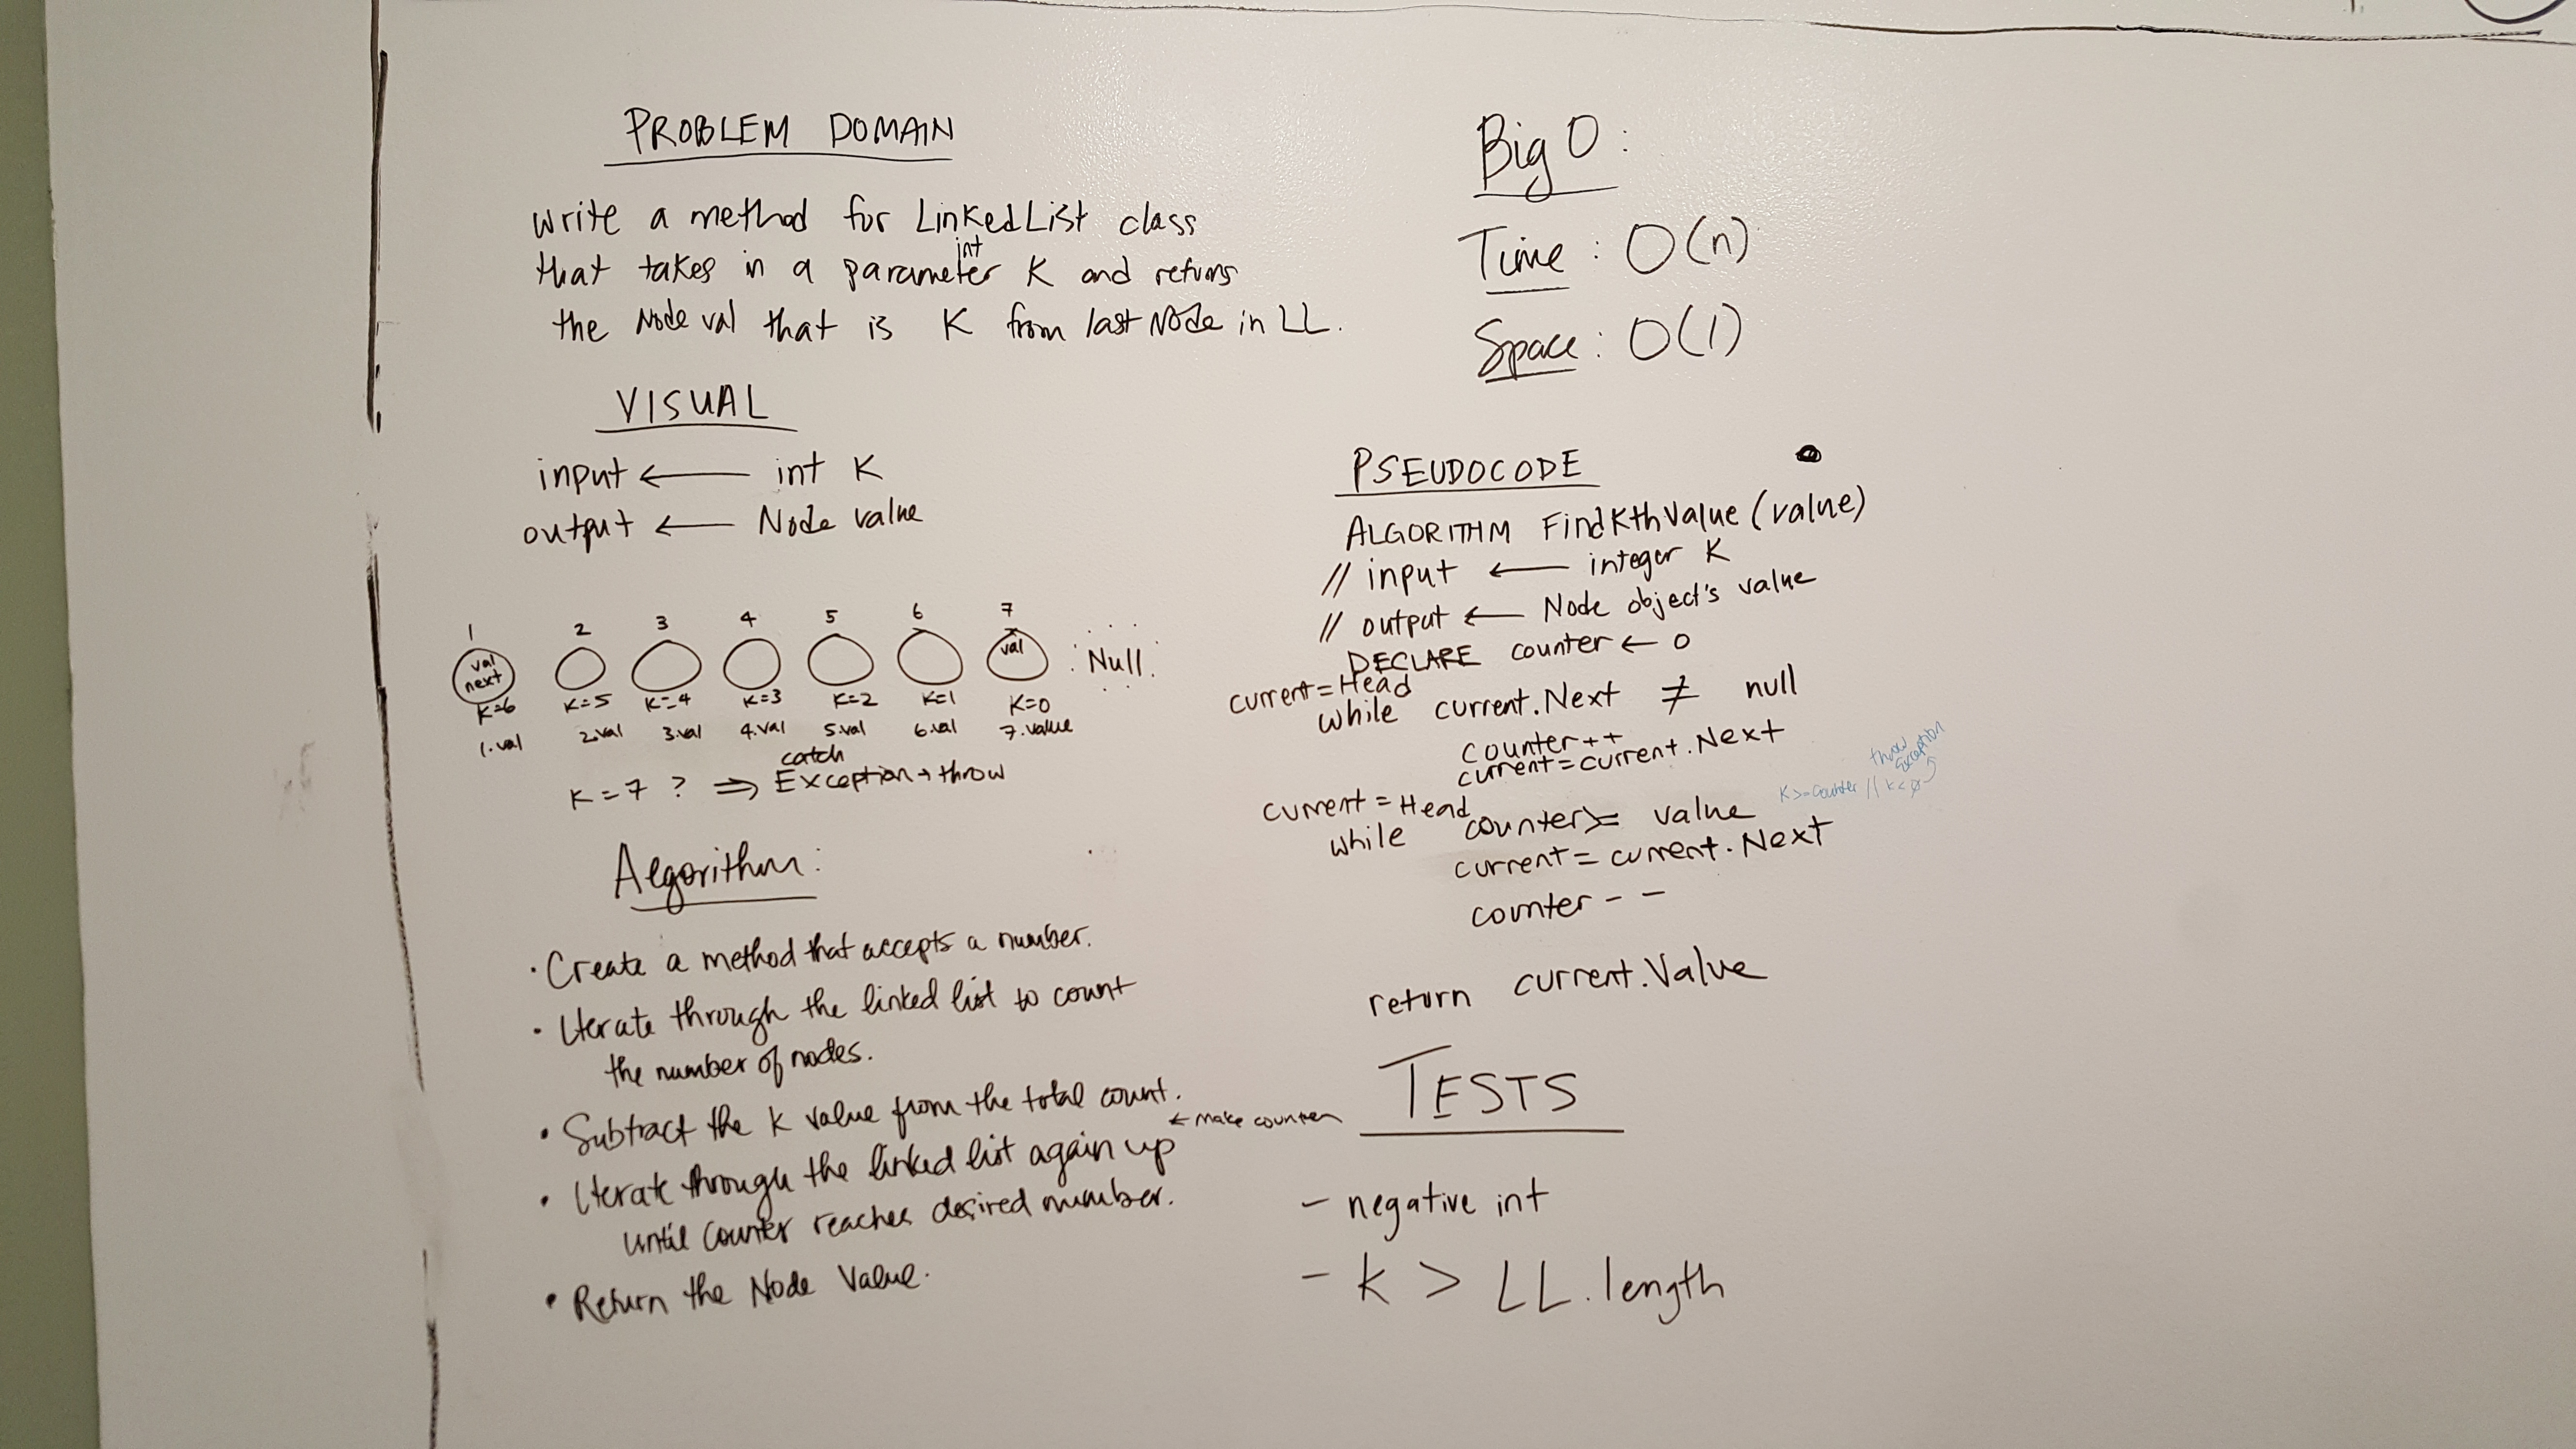 PROBLEM DOMAIN
Write a method for LinkedList class
int
that takes in a parameter K and returns
the Node val that is K from last Node in LL.
VISUAL
input ← int K
output ← Node value
1 2 3 4 5 6 7
val
next
val
Null
K=6 K=5 K=4 K=3 K=2 K=1 K=0
1.val 2.val 3.val 4.val 5.val 6.val 7.value
catch
K=7 ? ⇒ Exception → throw
Algorithm:
• Create a method that accepts a number.
• Iterate through the linked list to count
the number of nodes.
• Subtract the K value from the total count.
← make counter
• Iterate through the linked list again up
until counter reaches desired number.
• Return the Node Value.
Big O:
Time: O(n)
Space: O(1)
PSEUDOCODE
ALGORITHM FindKthValue (value)
// input ← integer K
// output ← Node object's value
DECLARE counter ← 0
current = Head
while current.Next ≠ null
counter++
current = current.Next
throw
exception
K>=counter || k<0
current = Head
while counter >= value
current = current.Next
counter--
return current.Value
TESTS
- negative int
- k > LL.length